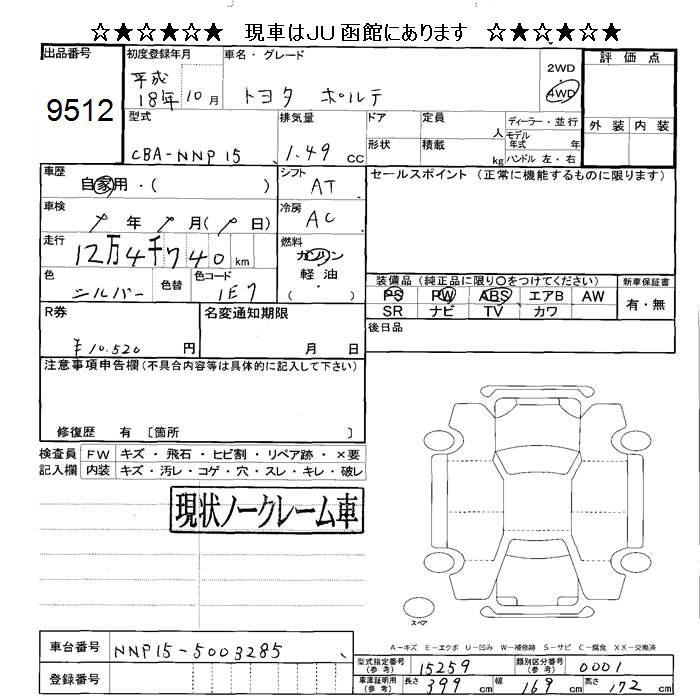 ☆★☆★☆★ 現車はJU函館にあります ☆★☆★☆★
出品番号 初度登録年月 車名・グレード 評価点
9512 平成18年10月 トヨタ ポルテ 2WD 4WD
型式 排気量 ドア 定員 人 ディーラー・並行 外装 内装
CBA-NNP15 1.49 CC 形状 積載 kg モデル年式 年 ハンドル 左・右
車歴 自家用・( ) シフト AT セールスポイント (正常に機能するものに限ります)
車検 年 月( 日) 冷房 AC
走行 12万4千740km 燃料 ガソリン 軽油 ( )
色 シルバー 色替 色コード 1E7
装備品(純正品に限り○をつけてください) 新車保証書
PS PW ABS エアB AW 有・無
SR ナビ TV カワ
R券 ¥10,520円 名変通知期限 月 日 後日品
注意事項申告欄(不具合内容等は具体的に記入して下さい)
修復歴 有 〔箇所 〕
検査員 FW キズ・飛石・ヒビ割・リペア跡・×要
記入欄 内装 キズ・汚レ・コゲ・穴・スレ・キレ・破レ
現状ノークレーム車
スペア
A-キズ E-エクボ U-凹み W-補修跡 S-サビ C-腐食 XX-交換済
車台番号 NNP15-5003285
型式指定番号(参考) 15259 類別区分番号(参考) 0001
登録番号
車庫証明用(参考) 長さ 399cm 幅 169cm 高さ 172cm